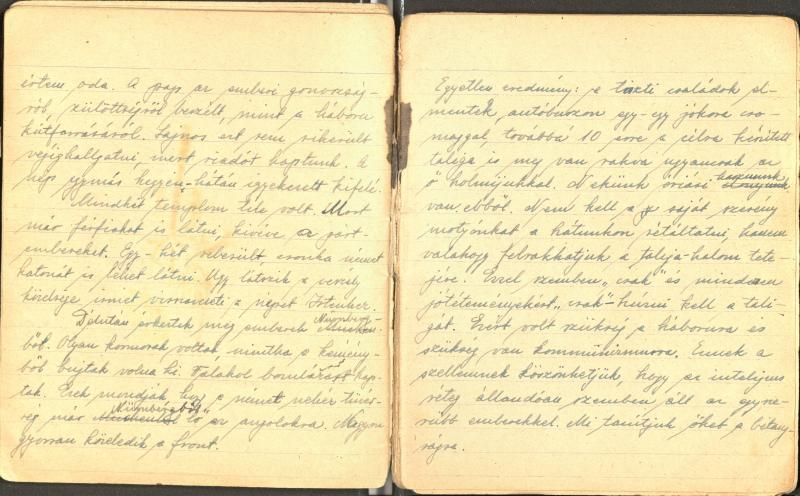 értem oda. A pap az emberi gonoszság-
ról, züllöttségről beszélt, mint a háború
kútforrásáról. Sajnos ezt sem sikerült
végighallgatni, mert riadót kaptunk. A
nép egymás hegyen-hátán igyekezett kifelé.
Mindkét templom tele volt. Most
már férfiakat is látni, kivéve a párt-
embereket. Egy-két sebesült, csonka német
katonát is lehet látni. Úgy látszik a veszély
közelsége ismét visszavezeti a népet Istenhez.
Délután érkeztek meg emberek Nürnberg-
ből. Olyan kormosak voltak, mintha a kémény-
ből bújtak volna ki. Falakol bombázást kap-
tak. Ezek mondják, hogy a német nehéz tüzér-
ség már Nürnbergből lő az angolokra. Nagyon
gyorsan közeledik a front.
Egyetlen eredmény: a tiszti családok el-
mentek, autóbuszon egy-egy jókora cso-
maggal, továbbá 10 erre a célra készített
taliga is meg van rakva ugyancsak az
ő holmijukkal. Nekünk óriási hasznunk
van ebből. Nem kell a saját szerény
motyónkat a hátunkon sétáltatni, hanem
valahogy felrakhatjuk a taliga-halom tete-
jére. Ezzel szemben "csak" és minden
jótéteményekért "csak" húzni kell a tali-
gát. Ezért volt szükség a háborúra és
szükség van kommunizmusra. Ennek a
szellemnek köszönhetjük, hogy az inteligens
réteg állandóan szemben áll az egysze-
rűbb emberekkel. Mi tanítjuk őket a betyár-
ságra.